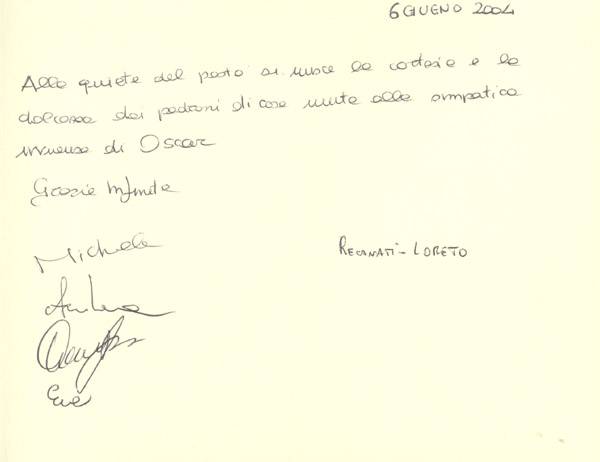 6 GIUGNO 2004
Alla quiete del posto si unisce la cortesia e la
dolcezza dei padroni di casa unite alla simpatica
irruenza di Oscar
Grazie Infinite
Michele
RECANATI - LORETO